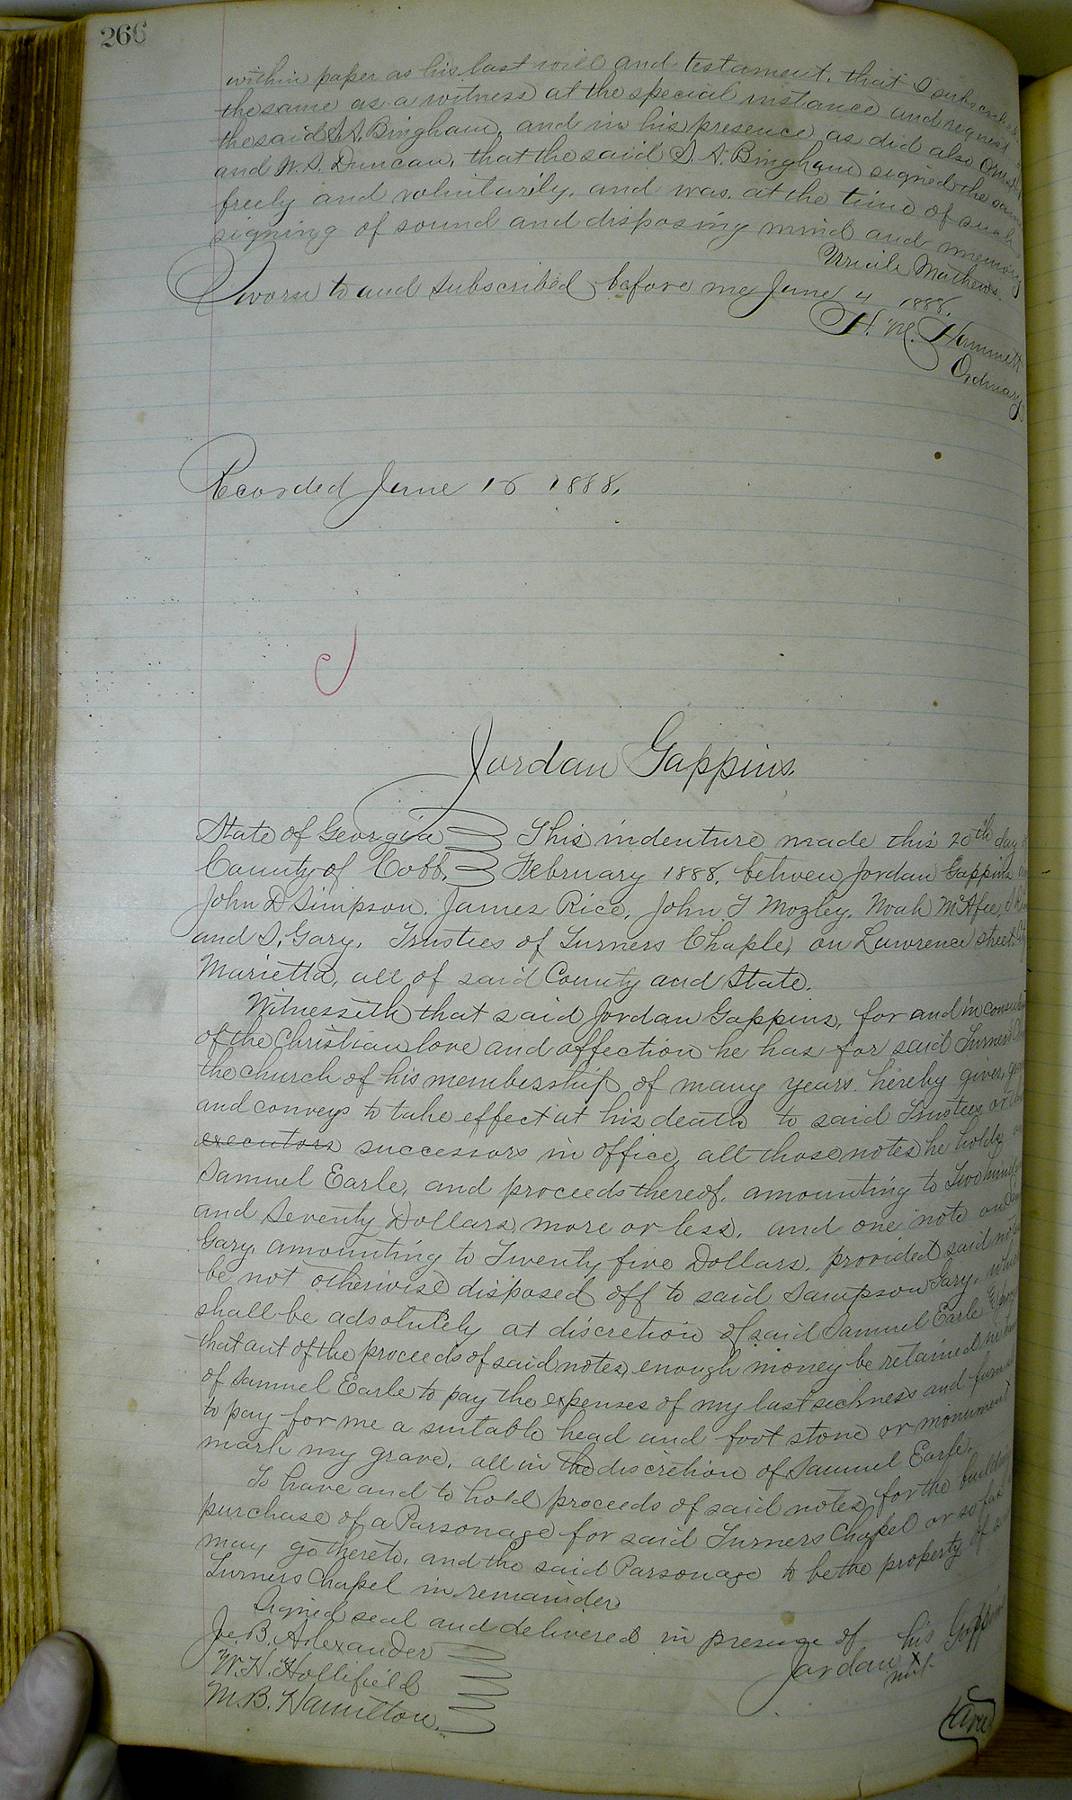 266
within paper as his last will and testament, that I subscribed
the same as a witness at the special instance and request
the said S. A. Bingham, and in his presence as did also
and W. S. Duncan, that the said S. A. Bingham signed the same
freely and voluntarily, and was at the time of such
signing of sound and disposing mind and memory
Mathews.
Sworn to and subscribed before me June 4 1888.
H. M. Hammett
Ordinary
Recorded June 16 1888.
Jordan Gappins.
State of Georgia This indenture made this 20th day
County of Cobb. February 1888, between Jordan Gappins
John D Simpson, James Rice, John T Mozley, Noah McAfee,
and S. Gary, Trustees of Turners Chaple, on Lawrence street,
Marietta, all of said County and State.
Witnesseth that said Jordan Gappins, for and in
of the Christian love and affection he has for said Turners
the church of his membership of many years hereby gives,
and conveys to take effect at his death to said Trustees or
executors successors in office, all those notes he holds
Samuel Earle, and proceeds thereof, amounting to Two
and Seventy Dollars more or less, and one note on
Gary, amounting to Twenty five Dollars, provided said
be not otherwise disposed off to said Sampson Gary,
shall be adsolutely at discretion of said Samuel Earle
that out of the proceeds of said notes, enough money be retained
of Samuel Earle to pay the expenses of my last sickness and
to pay for me a suitable head and foot stone or monument
mark my grave, all in the discretion of Samuel Earle.
To have and to hold proceeds of said notes for the
purchase of a Parsonage for said Turners Chapel or so far
may go thereto, and the said Parsonage to be the property of
Turners Chapel in remainder
Signed seal and delivered in presence of
Jordan his x mark Gappins
Je. B. Alexander
W. H. Hollifield
M. B. Hamilton.